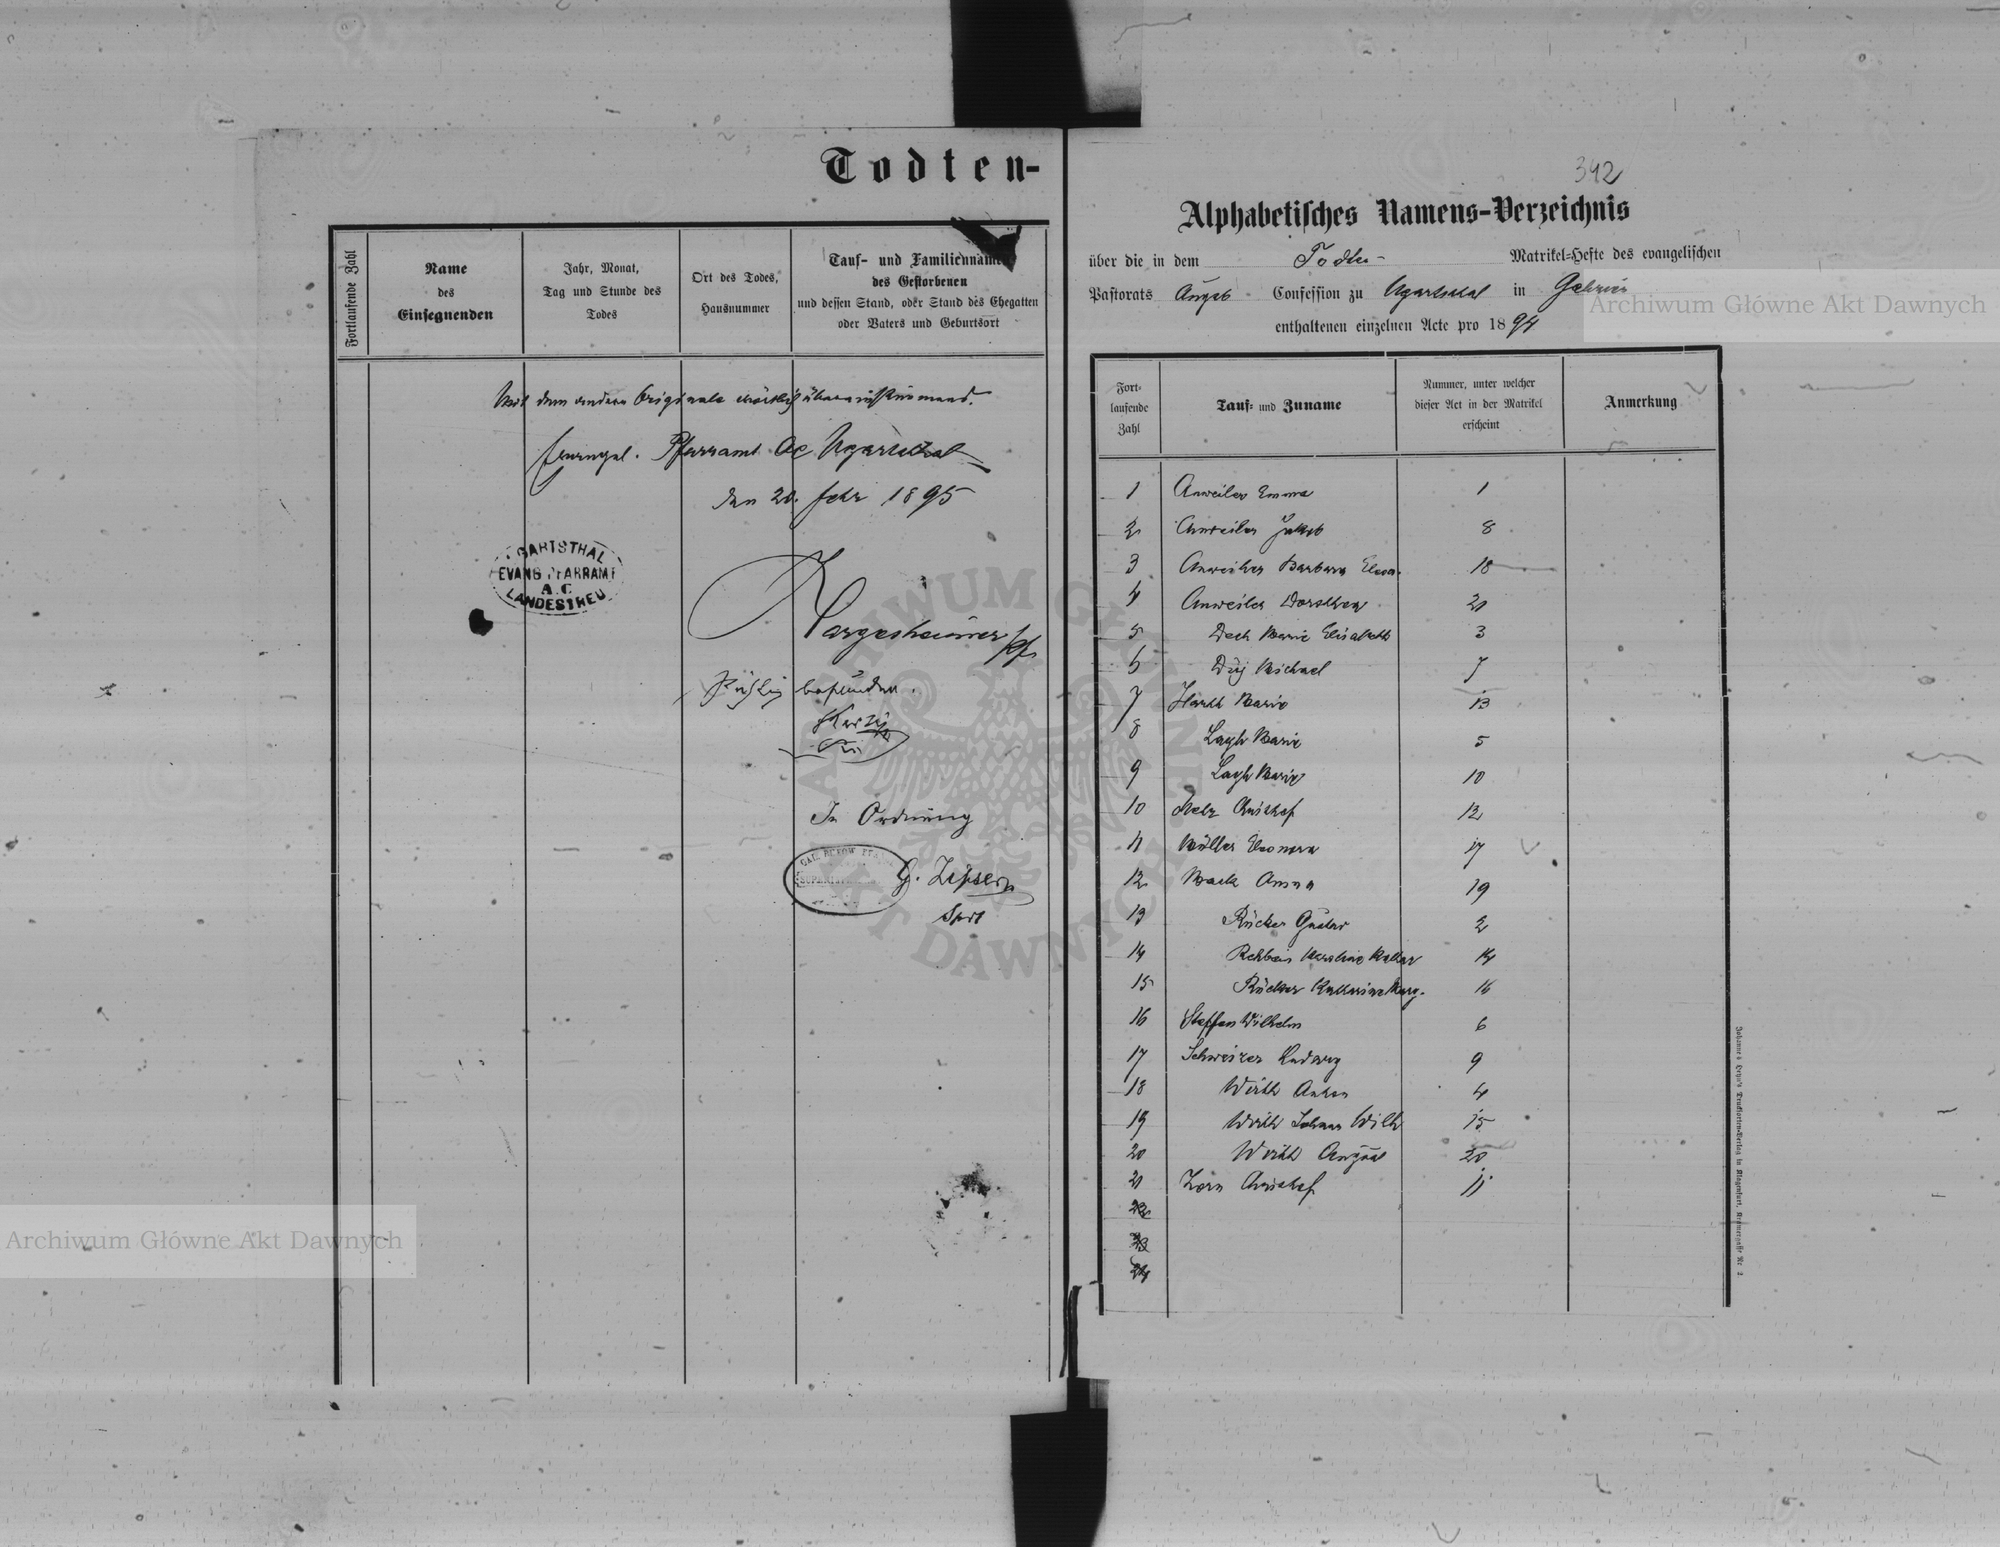 Todten-
Fortlaufende Zahl
Name
des
Einsegnenden
Jahr, Monat,
Tag und Stunde des
Todes
Ort des Todes,
Hausnummer
Tauf- und Familienname
des Gestorbenen
und dessen Stand, oder Stand des Ehegatten
oder Vaters und Geburtsort
Mit dem andern Originale wörtlich übereinstimmend.
Evangel. Pfarramt AC Ugartsthal
den 20. Febr 1895
GARTSTHAL
EVANG. PFARRAMT
A.C.
LANDESTREU
Kargesheimer Pfr
befunden.
In Ordnung
G. Zipser
Supt
342
Alphabetisches Namens-Verzeichnis
über die in dem Todten- Matrikel-Hefte des evangelischen
Pastorats Augsb Confession zu Ugartsthal in Galizien
enthaltenen einzelnen Acte pro 1894
Fort-
laufende
Zahl
Tauf- und Zuname
Nummer, unter welcher
dieser Act in der Matrikel
erscheint
Anmerkung
1 Anweiler Emma 1
2 Anweiler Jakob 8
3 Anweiler Barbara Eleon. 18
4 Anweiler Dorothea 21
5 Dech Marie Elisabeth 3
6 Michael 7
7 Harth Marie 13
8 Marie 5
9 Marie 10
10 Metz Christof 12
11 Müller Eleonora 17
12 Mack Anna 19
13 Rücker Gustav 2
14 Rehbein Karoline 14
15 Rücker Katharina Marg. 16
16 Steffen Wilhelm 6
17 Schweizer Ludwig 9
18 Wirth Anton 4
19 Wirth Johann Wilh 15
20 Wirth August 20
21 Zorn Christof 11
22
23
24
Archiwum Główne Akt Dawnych
Archiwum Główne Akt Dawnych
ARCHIWUM GŁÓWNE AKT DAWNYCH